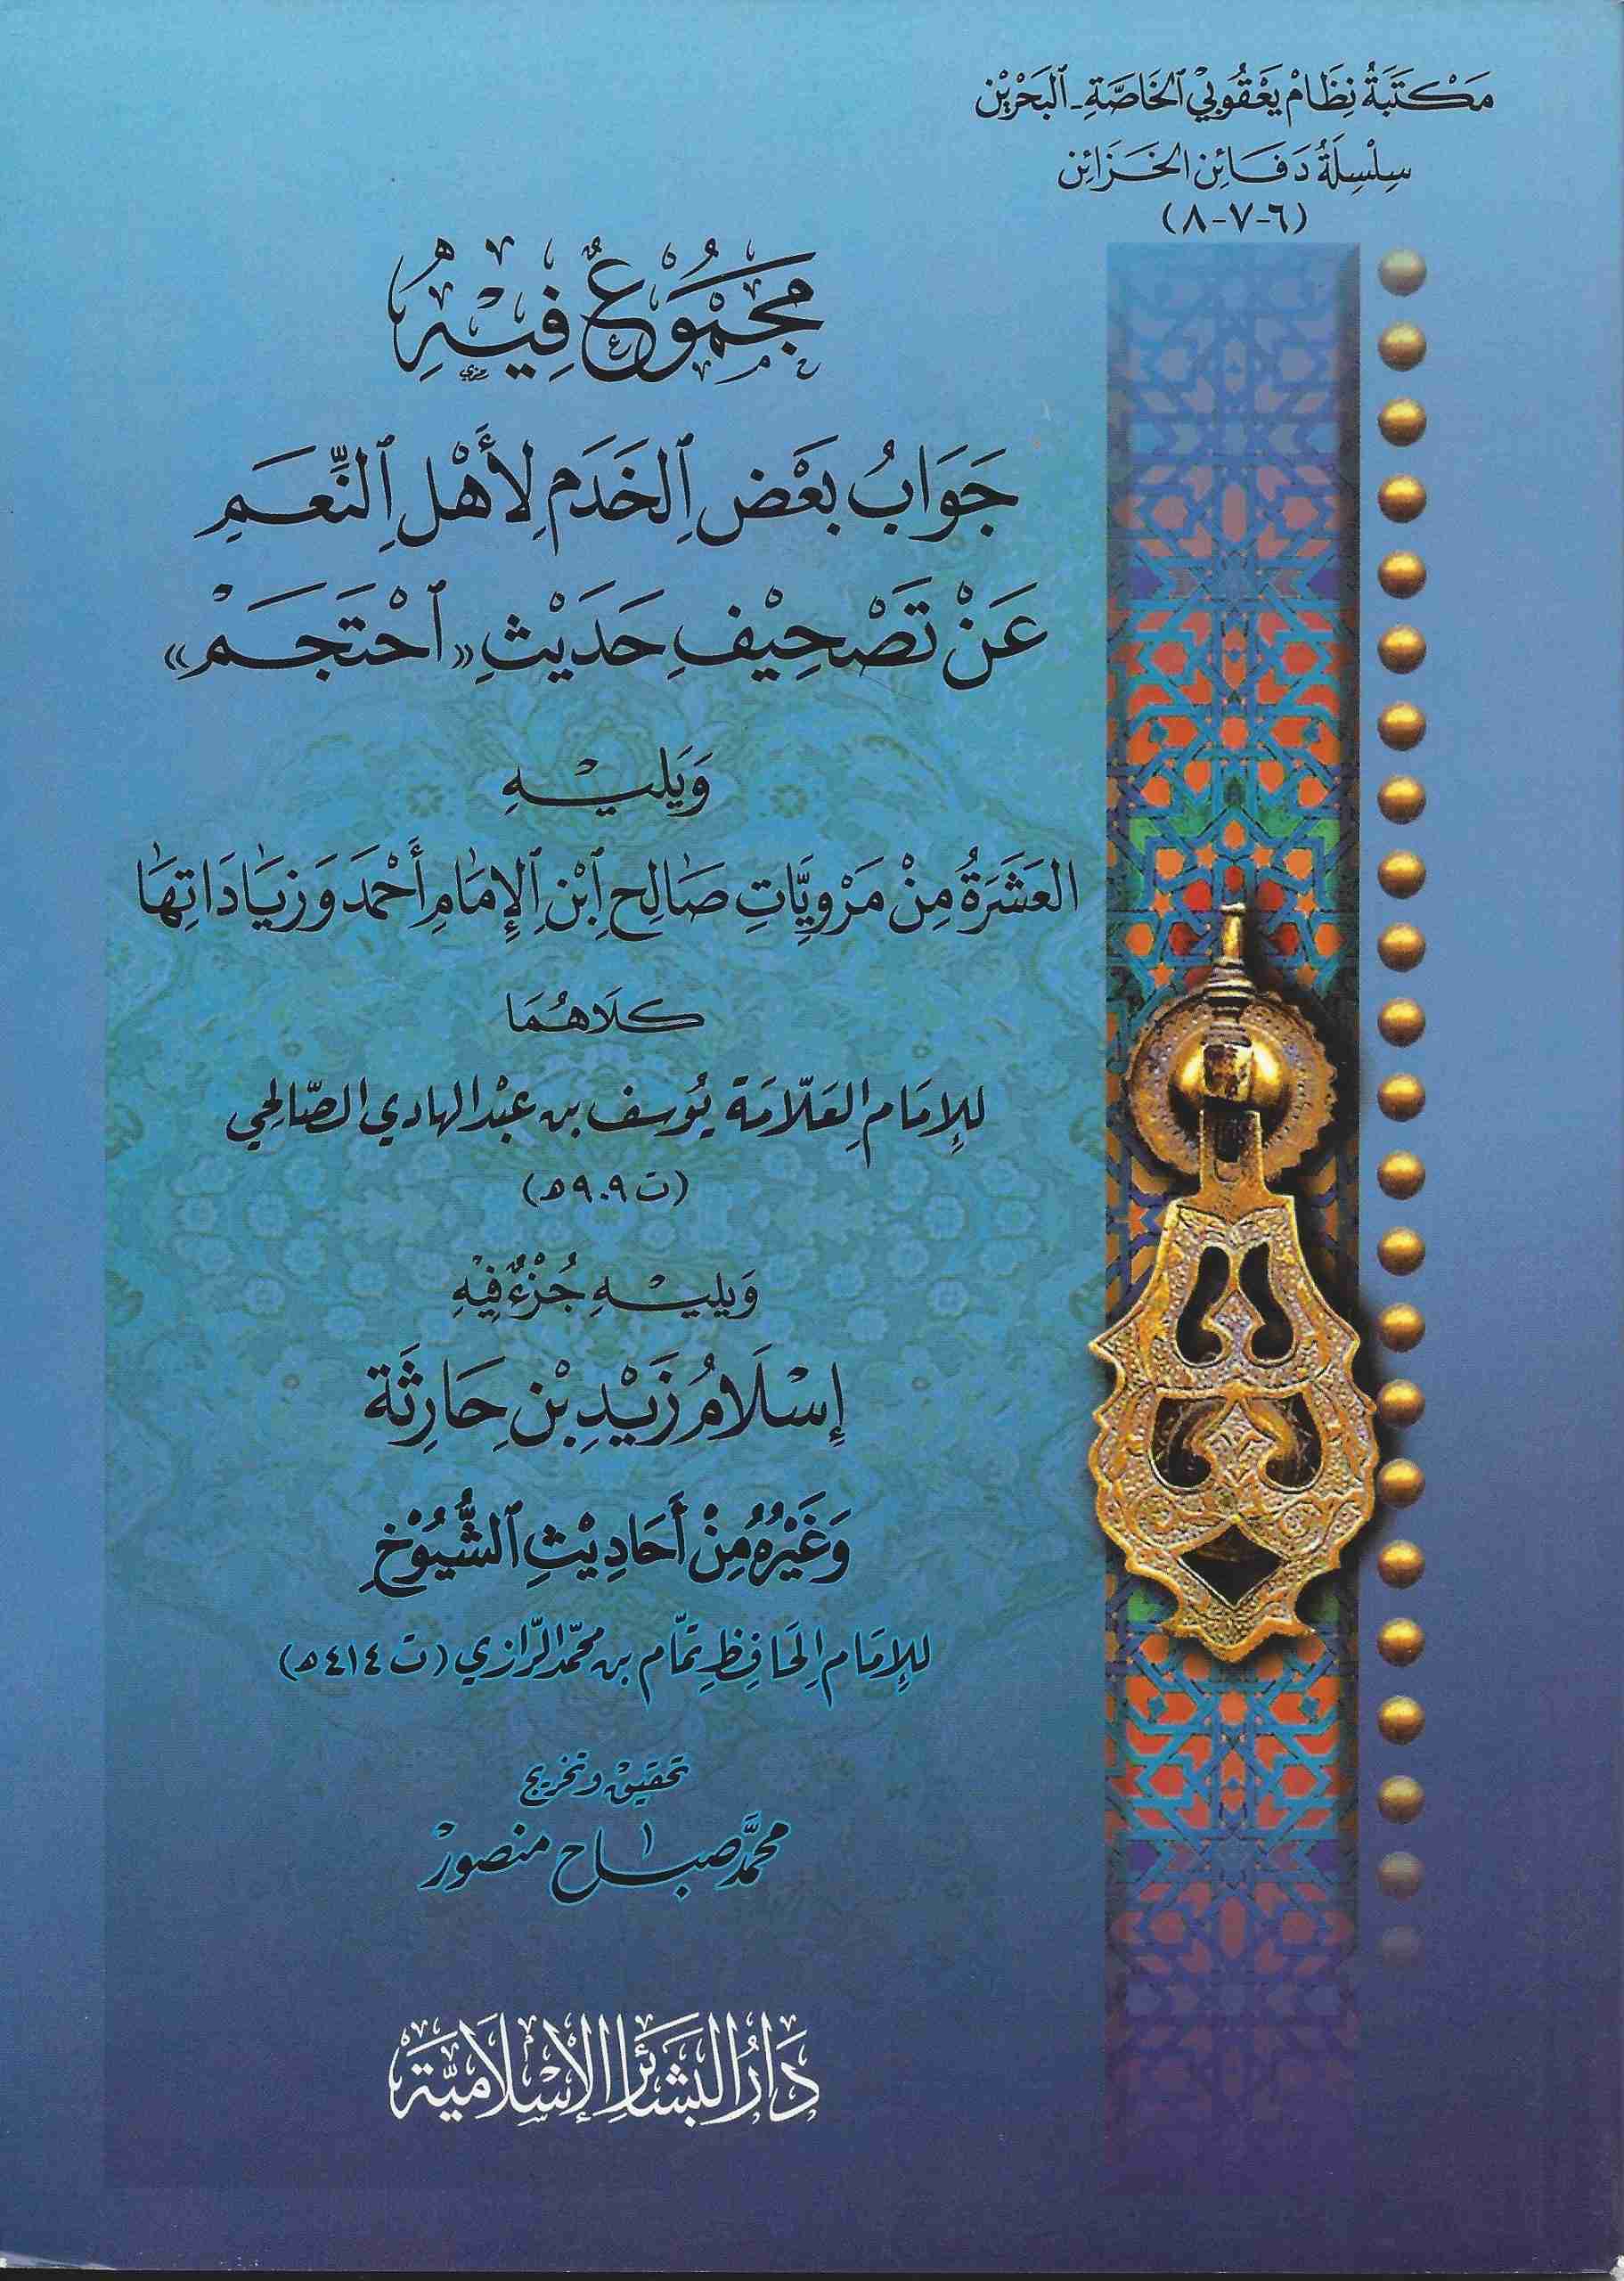 مَكْتَبَةُ نِظَامْ يَعْقُوبِي الخَاصَّةِ - البَحْرَيْن
سِلْسِلَةُ دَفَائِن الخَزَائِن
(٦-٧-٨)
مَجْمُوعٌ فِيْهِ
جَوَابُ بَعْضِ الخَدَمِ لِأَهْلِ النِّعَمِ
عَنْ تَصْحِيْفِ حَدِيْثِ «احْتَجَمْ»
وَيَلِيْهِ
العَشَرَةُ مِنْ مَرْوِيَّاتِ صَالِحِ ابْنِ الإِمَامِ أَحْمَدَ وَزِيَادَاتِهَا
كِلَاهُمَا
لِلإِمَامِ العَلَّامَةِ يُوسُف بن عَبْد الهادي الصَّالِحِي
(ت ٩٠٩ هـ)
وَيَلِيْهِ جُزْءٌ فِيْهِ
إِسْلَامُ زَيْدِ بْنِ حَارِثَة
وَغَيْرُهُ مِنْ أَحَادِيْثِ الشُّيُوْخِ
لِلإِمَامِ الحَافِظِ تَمَّام بن محمَّد الرَّازي (ت ٤١٤ هـ)
تحقيق وتخريج
محمَّد صباح منصور
دَارُ البَشَائِرِ الإِسْلَامِيَّة